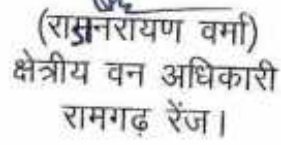 (रामनरायण वर्मा)
क्षेत्रीय वन अधिकारी
रामगढ़ रेंज।